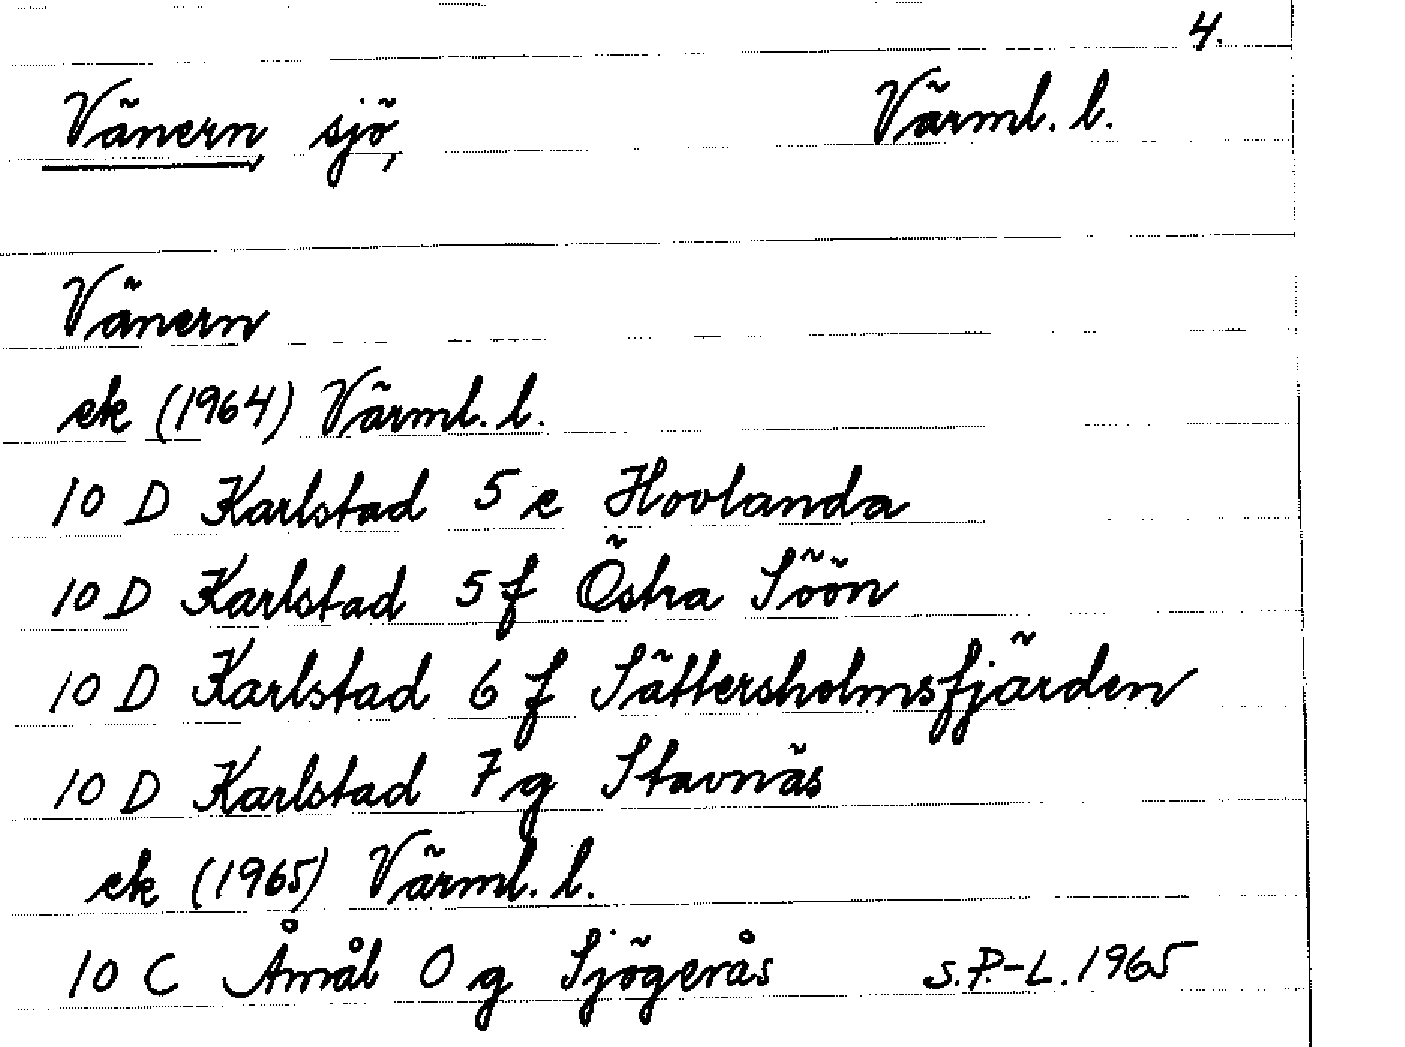 4.
Vänern, sjö, Värml. l.
Vänern
ek (1964) Värml. l.
10 D Karlstad 5 e Hovlanda
10 D Karlstad 5 f Östra Söön
10 D Karlstad 6 f Sättersholmsfjärden
10 D Karlstad 7 g Stavnäs
ek (1965) Värml. l.
10 C Åmål 0 g Sjögerås S.P-L. 1965